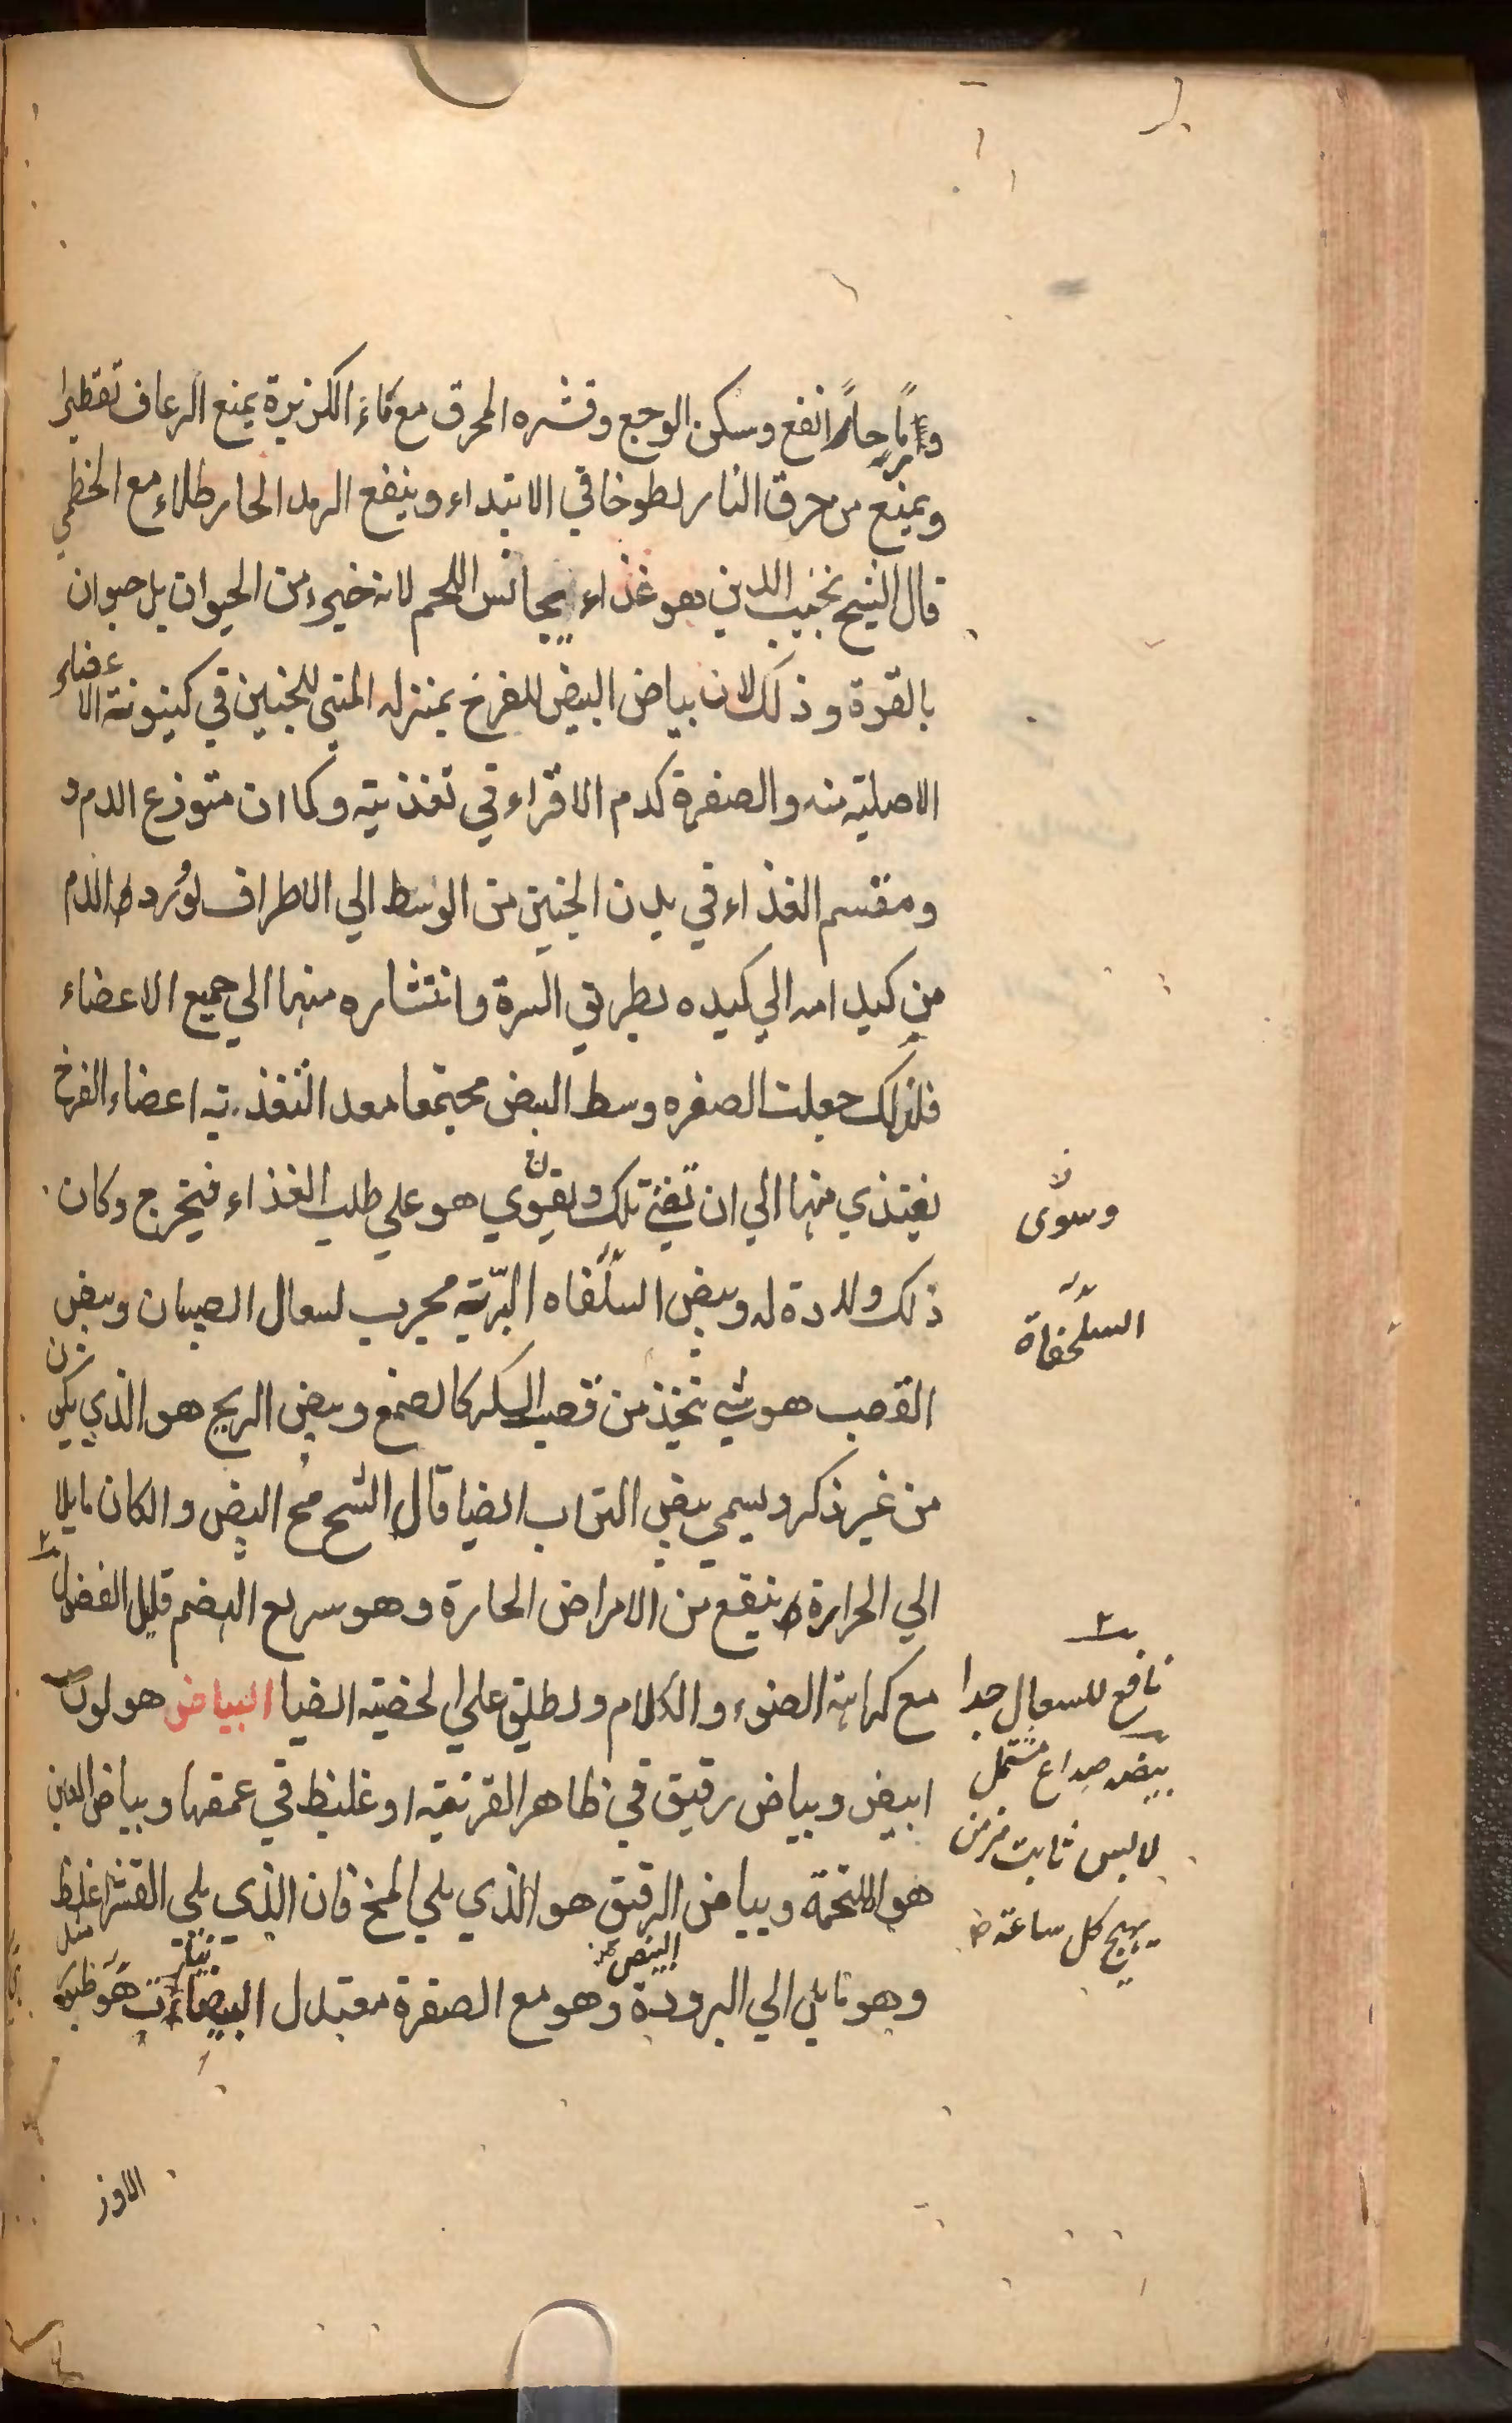 انفع وسكن الوجع وقشره المحرق مع ماء الكزبرة يمنع الرعاف تقطيرا
ويمنع من حرق النار لطوخا في الابتداء وينفع الرمد الحار طلاء مع الخطمي
قال الشيخ نجيب الدين هو غذاء يجانس اللحم لانه خيره من الحيوان بل حيوان
بالقوة وذلك لان بياض البيض للفرخ بمنزله المني للجنين في كينونة الاعضاء
الاصلية منه والصفرة كدم الاقراء في تغذيته وكما ان متوزع الدم و
ومقسم الغذاء في بدن الجنين من الوسط الي الاطراف لورود الدم
من كبد امه الي كبده بطريق السرة وانتشاره منها الي جميع الاعضاء
فلذلك جعلت الصفره وسط البيض مجتمعا معدا لتغذية اعضاء الفرخ
يغتذي منها الي ان تفني تلك ويقوي هو علي طلب الغذاء فيخرج وكان
ذلك ولادة له وبيض السلفاه البرّية مجرب لسعال الصبيان وبيض
القصب هو شي يتخذ من قصب السكر كالصمغ وبيض الريح هو الذي يكون
من غير ذكر ويسمي بيض التراب ايضا قال الشيخ مح البيض والكان مايلا
الي الحرارة ينفع من الامراض الحارة وهو سريع الهضم قليل الفضول
مع كراهة الضوء والكلام ويطلق علي الخصية ايضا البياض هو لون
ابيض وبياض رقيق في ظاهر القرنية او غليظ في عمقها وبياض العين
هو الملتحمة وبياض الرقيق هو الذي يلي المخ فان الذي يلي القشر اغلظ
وهو مايل الي البرودة وهو مع الصفرة معتدل
البيض
الاوز
وسوّى
السلحفاة
نافع للسعال جدا
بيضه صداع مشتمل
لابس ثابت مزمن
يهيج كل ساعة